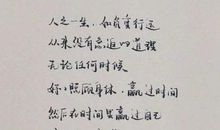 人之一生，如负重行远
从来没有急迫的道理
无论任何时候
好好照顾身体，赢过时间
然后在时间里赢过自己